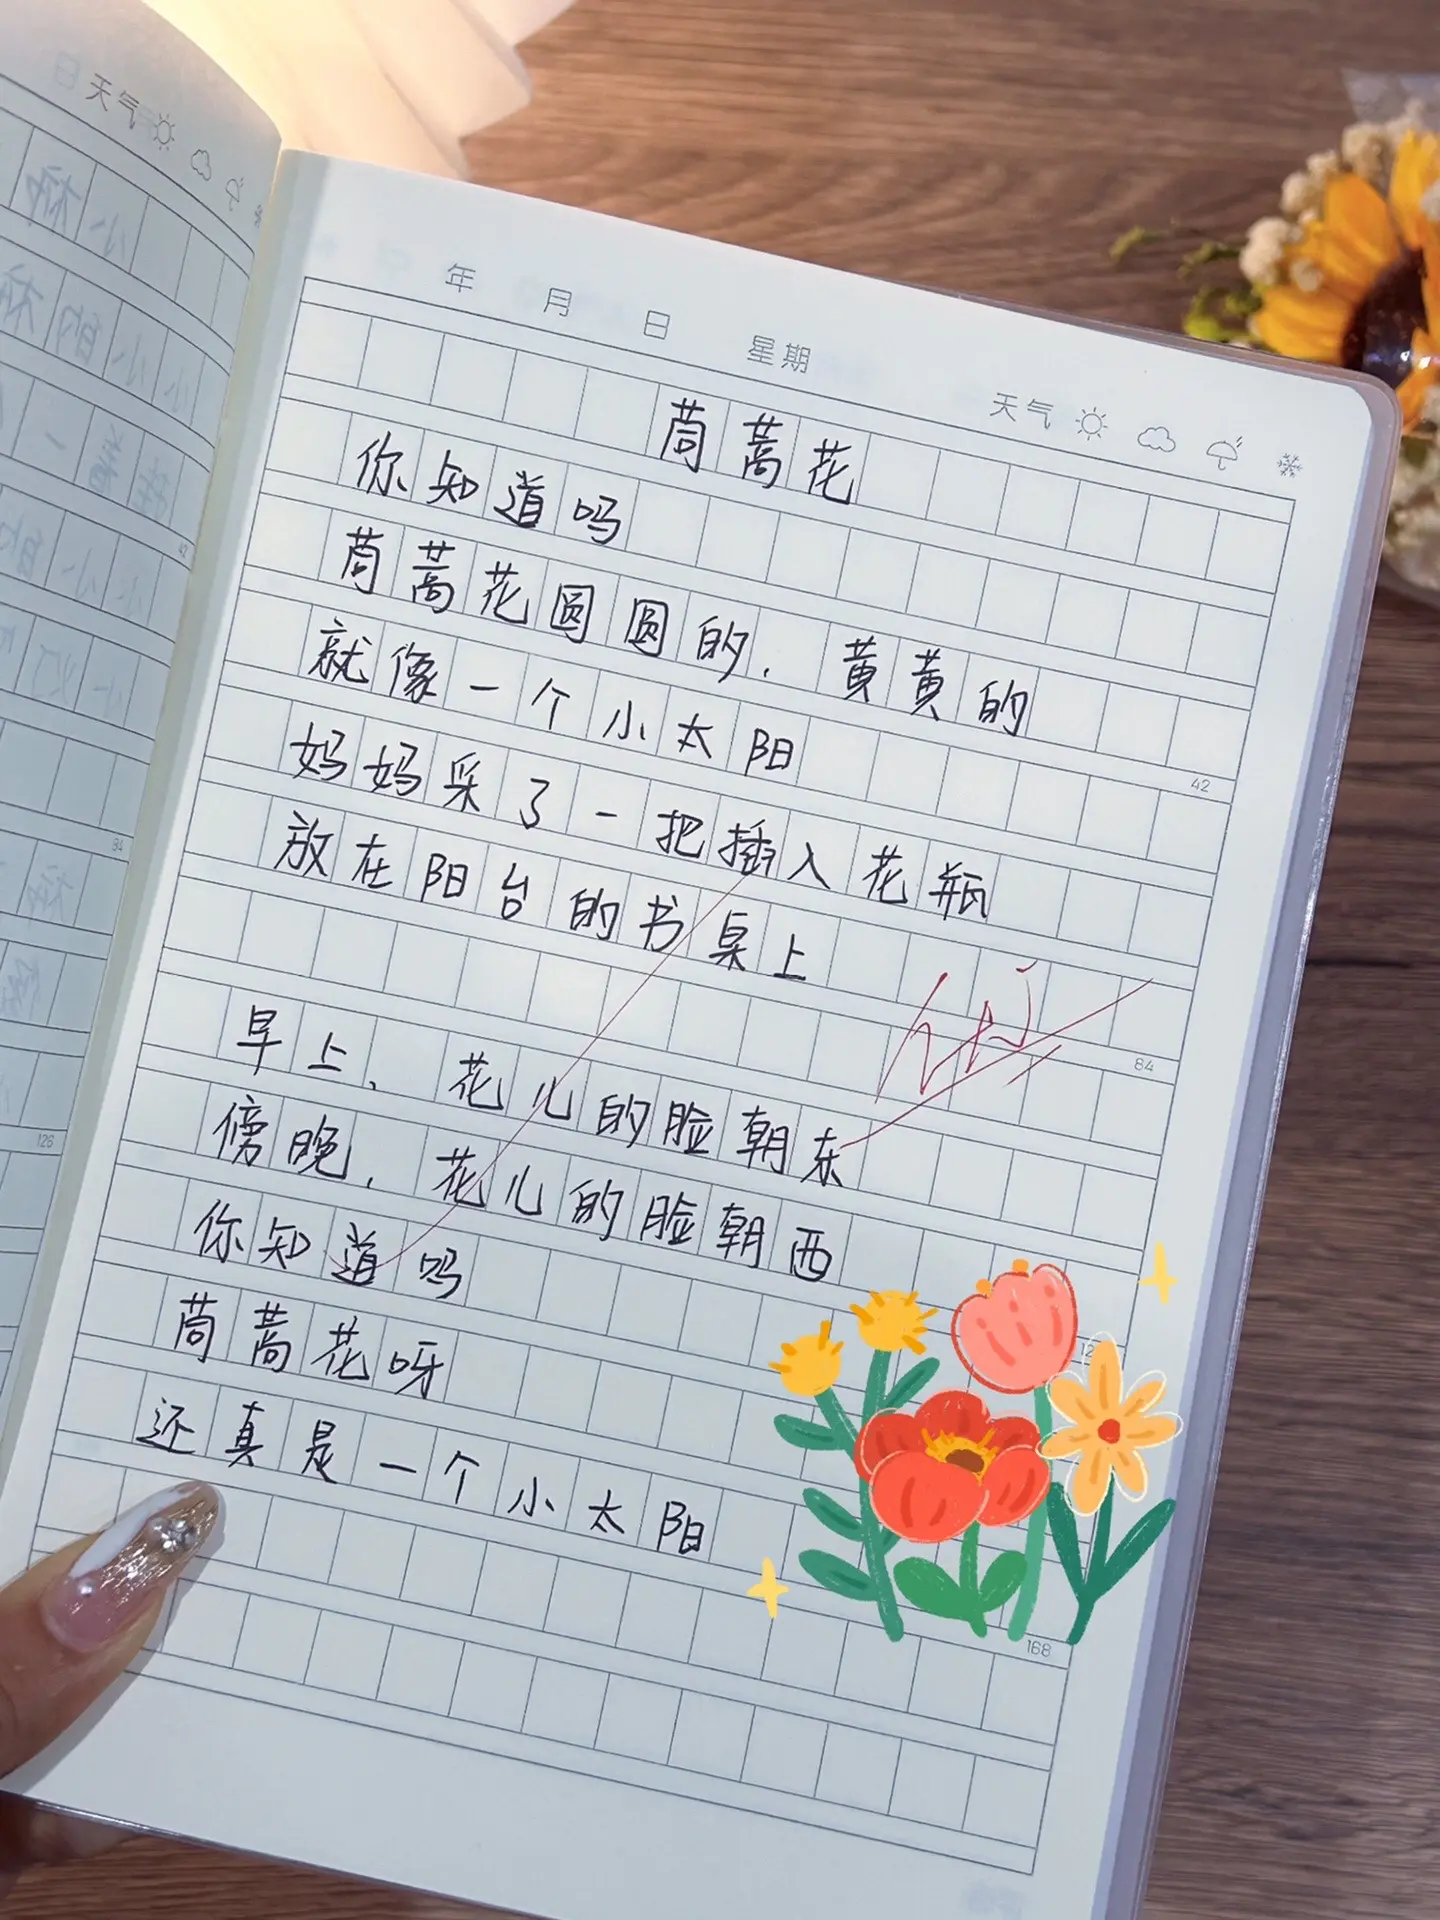 天气
年 月 日 星期 天气
茼蒿花
你知道吗
茼蒿花圆圆的，黄黄的
就像一个小太阳
妈妈采了一把插入花瓶
放在阳台的书桌上
早上，花儿的脸朝东
傍晚，花儿的脸朝西
你知道吗
茼蒿花呀
还真是一个小太阳
42
84
168
42
84
126